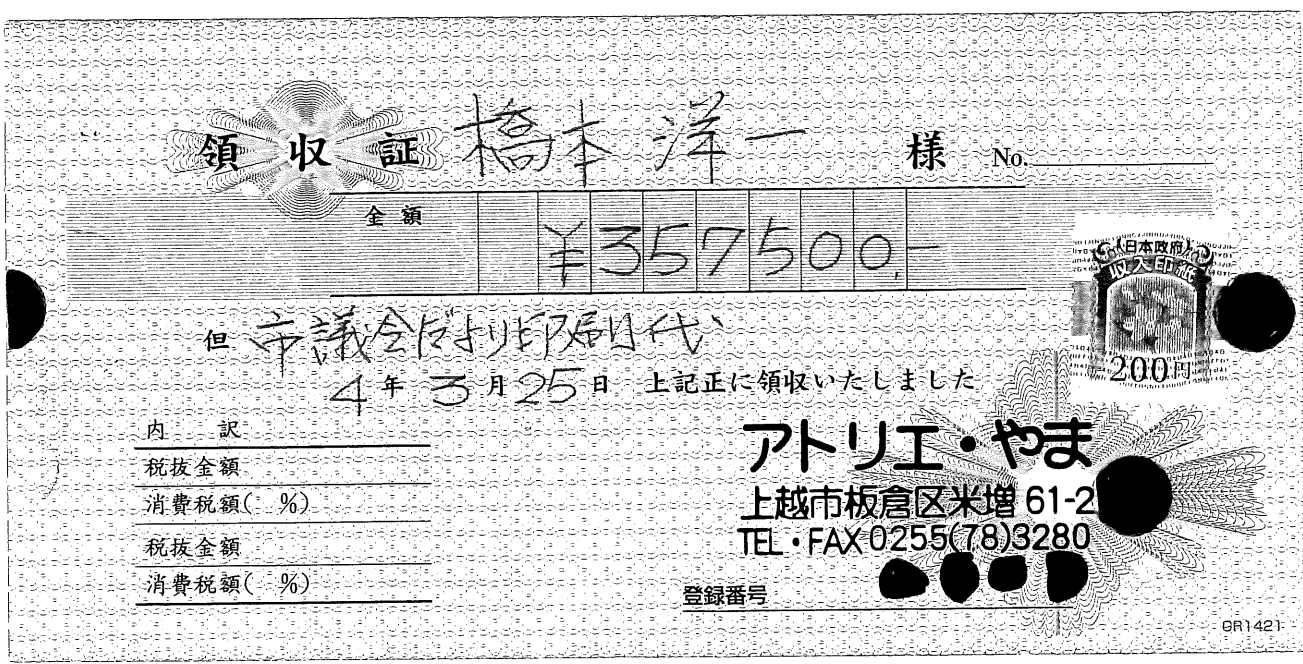 領収証 橋本 洋一 様 No.
金額 ¥357500,-
日本政府
収入印紙
200円
但 市議会だより印刷代
4年3月25日 上記正に領収いたしました
内 訳
税抜金額
消費税額( %)
税抜金額
消費税額( %)
アトリエ・やま
上越市板倉区米増 61-2
TEL・FAX 0255(78)3280
登録番号
GR1421